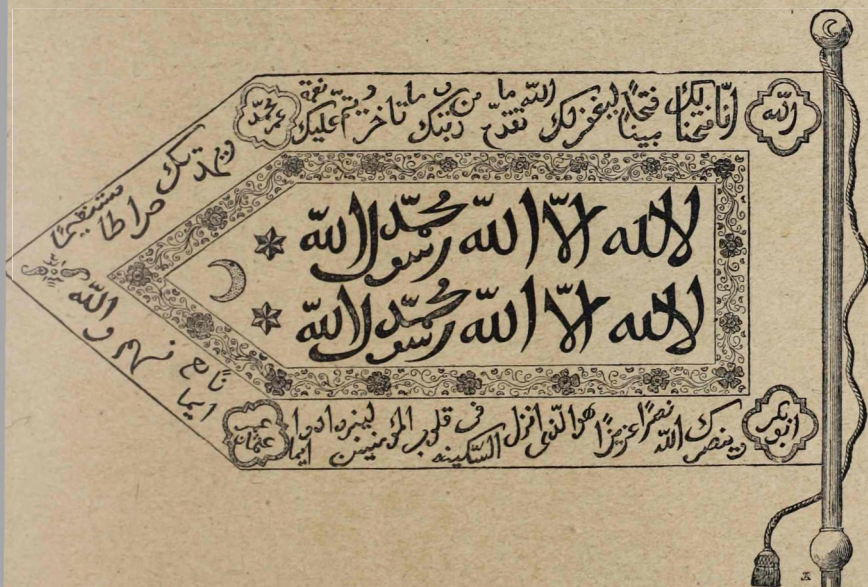 الله
انّا فتحنا لك فتحاً مبيناً ليغفر لك الله ما تقدّم من ذنبك و ما تاخّر و يتمّ نعمة عليك
محمّد عمر
ويهديك صراطا مستقيمًا
لااله الّا الله محمّد رسول الله
لااله الّا الله محمّد رسول الله
ابوبكر
وينصرك الله نصرًا عزيزًا هوالّذى انزل السّكينه فى قلوب المؤمنين ليزدادوا ايما
عثمان
ايما نًا مع نهم و الله